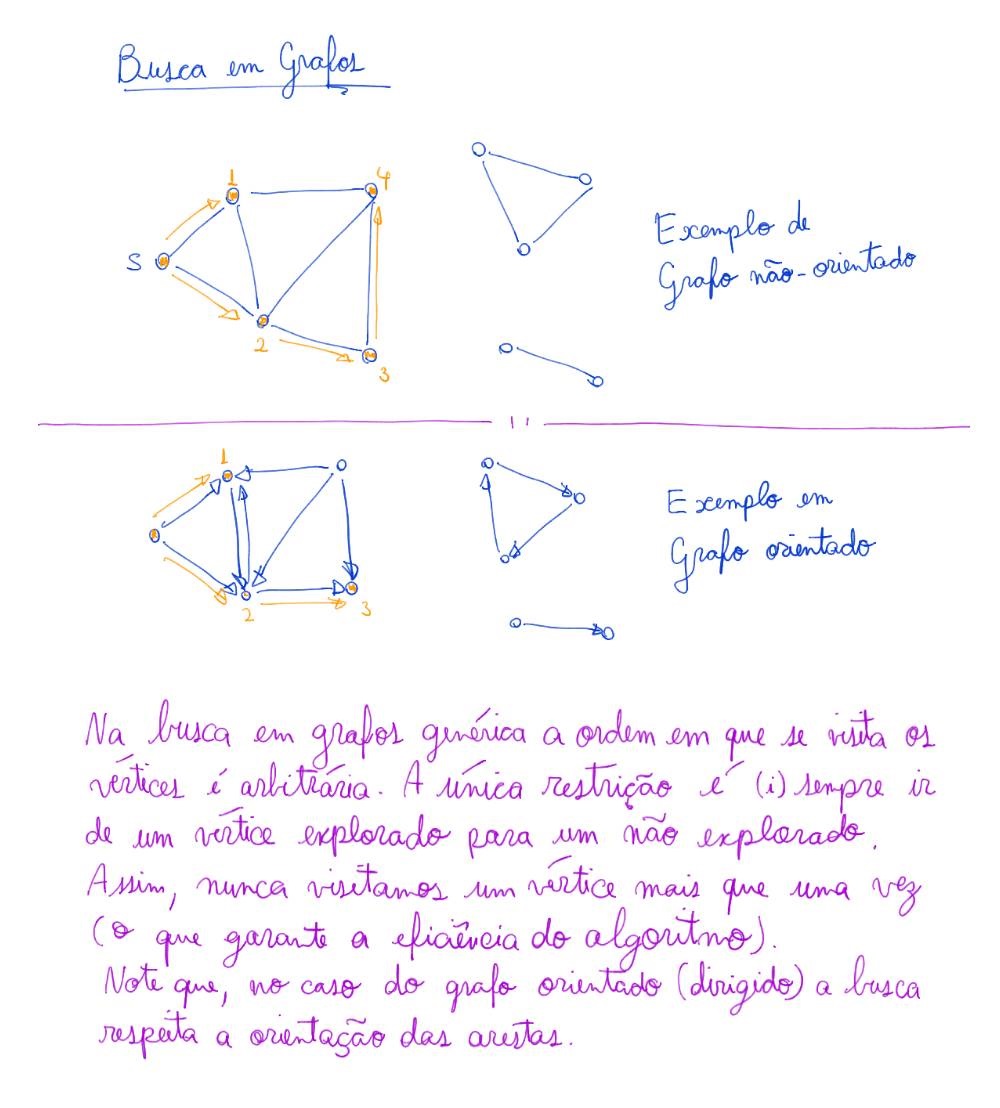 Busca em Grafos
1
4
S
2
3
Exemplo de
Grafo não-orientado
1
2
3
Exemplo em
Grafo orientado
Na busca em grafos genérica a ordem em que se visita os
vértices é arbitrária. A única restrição é (i) sempre ir
de um vértice explorado para um não explorado.
Assim, nunca visitamos um vértice mais que uma vez
(o que garante a eficiência do algoritmo).
Note que, no caso do grafo orientado (dirigido) a busca
respeita a orientação das arestas.